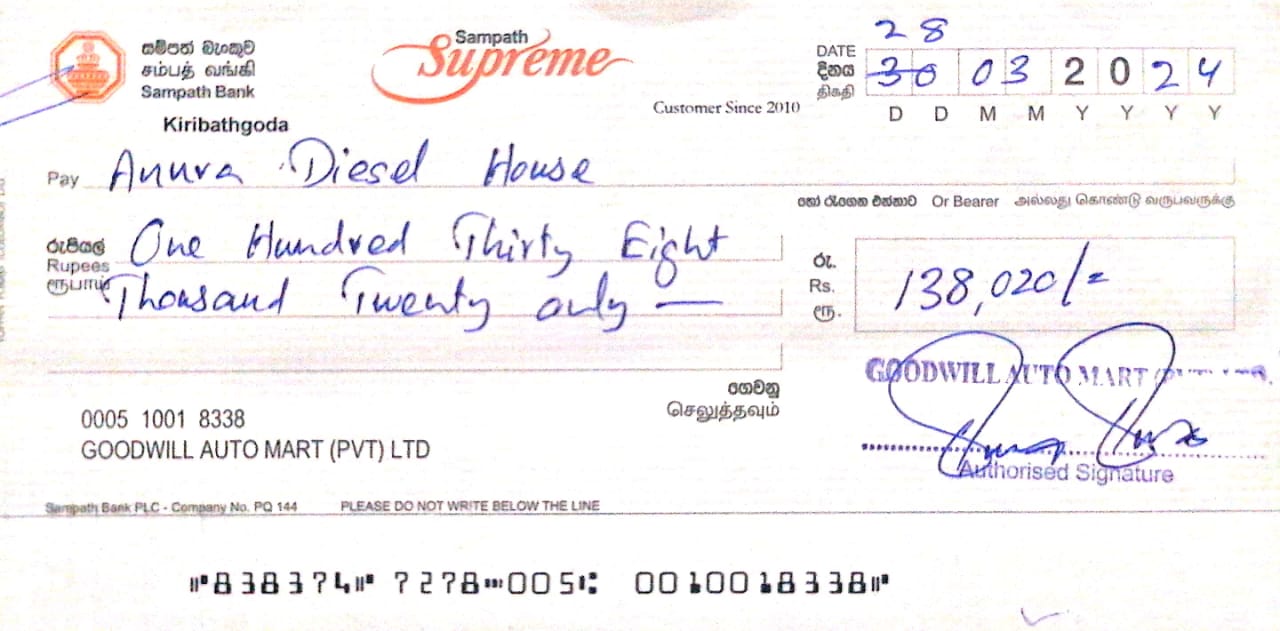 සම්පත් බැංකුව
சம்பத் வங்கி
Sampath Bank
Kiribathgoda
Sampath
Supreme
Customer Since 2010
28
DATE
දිනය
திகதி
30 03 2024
D D M M Y Y Y Y
Pay Anura Diesel House
හෝ රැගෙන එන්නාට Or Bearer அல்லது கொண்டு வருபவருக்கு
රුපියල්
Rupees
ரூபாய்
One Hundred Thirty Eight
Thousand Twenty only —
රු.
Rs.
ரூ.
138,020/=
ගෙවනු
செலுத்தவும்
GOODWILL AUTO MART
0005 1001 8338
GOODWILL AUTO MART (PVT) LTD
Authorised Signature
Sampath Bank PLC - Company No. PQ 144 PLEASE DO NOT WRITE BELOW THE LINE
⑈838374⑈ 7278⑉005⑆ 0010018338⑈